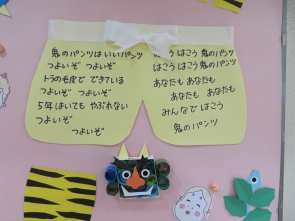 鬼のパンツはいいパンツ
つよいぞ つよいぞ
トラの毛皮で できている
つよいぞ つよいぞ
5年はいても やぶれない
つよいぞ
つよいぞ
はこう はこう 鬼のパンツ
はこう はこう 鬼のパンツ
あなたも あなたも
あなたも あなたも
みんなで はこう
鬼のパンツ